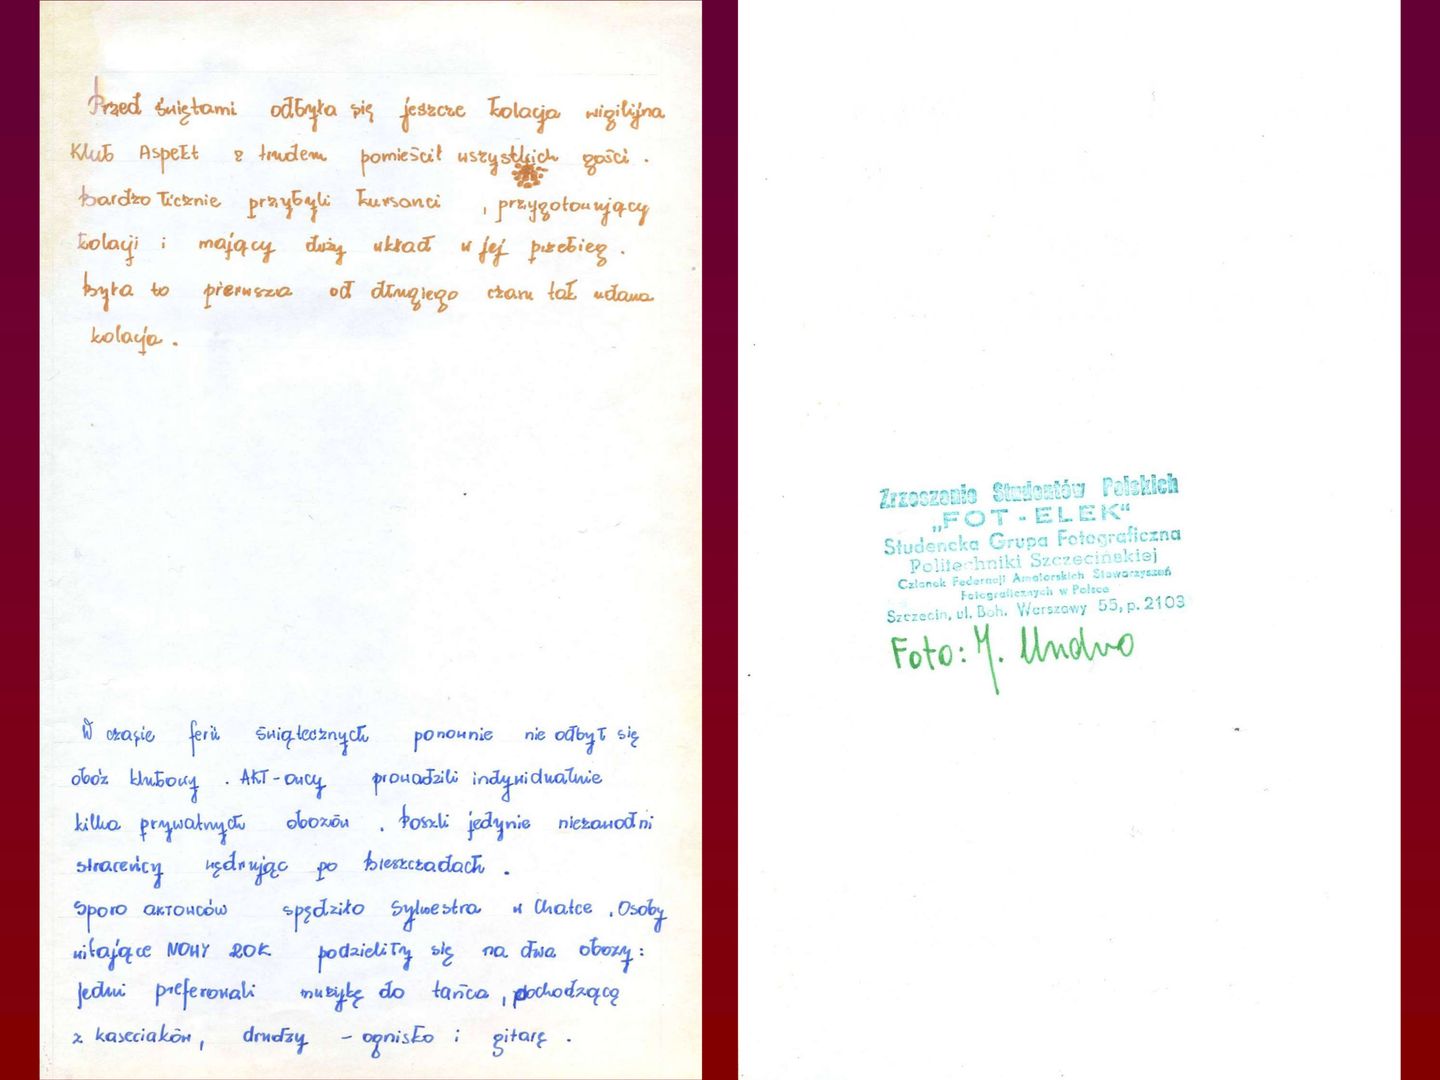 Przed świętami odbyła się jeszcze kolacja wigilijna
Klub Aspekt z trudem pomieścił wszystkich gości .
Bardzo licznie przybyli kursanci , przygotowujący
kolację i mający duży wkład w jej przebieg .
Była to pierwsza od długiego czasu tak udana
kolacja .
W czasie ferii świątecznych ponownie nie odbył się
obóz klubowy . AKT-owcy prowadzili indywidualnie
kilka prywatnych obozów . Poszli jedynie niezawodni
straceńcy wędrując po Bieszczadach .
Sporo aktowców spędziło Sylwestra w Chatce . Osoby
witające NOWY ROK podzieliły się na dwa obozy :
jedni preferowali muzykę do tańca , pochodzącą
z kaseciaków , drudzy - ognisko i gitarę .
Zrzeszenie Studentów Polskich
„FOT - ELEK"
Studencka Grupa Fotograficzna
Politechniki Szczecińskiej
Członek Federacji Amatorskich Stowarzyszeń
Fotograficznych w Polsce
Szczecin, ul. Boh. Warszawy 55, p. 2103
Foto: J.